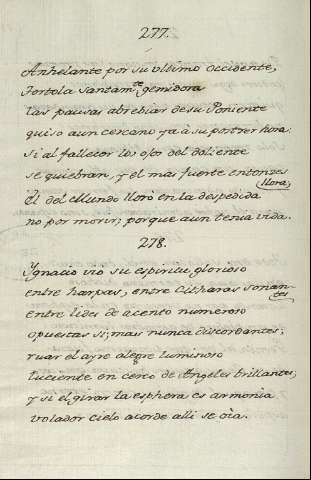 277.
Anhelante por su ultimo occidente,
Tortola santam.te gemidora
las pausas abrebiar de su Poniente
quiso aun cercano ya â su postrer hora:
si al fallecer los ojos del doliente
se quiebran, y el mas fuerte entonzes llora,
El del Mundo lloró en la despedida
no por morir; porque aun tenia vida.
278.
Ygnacio vio su espiritu glorioso
entre harpas, entre Citharas sonantes
entre lides de acento numeroso
opuestas si; mas nunca discordantes;
ruar el ayre alegre luminoso
luciente en cerco de Angeles brillantes,
y si el girar la esphera es armonia
volador cielo acorde alli se oìa.